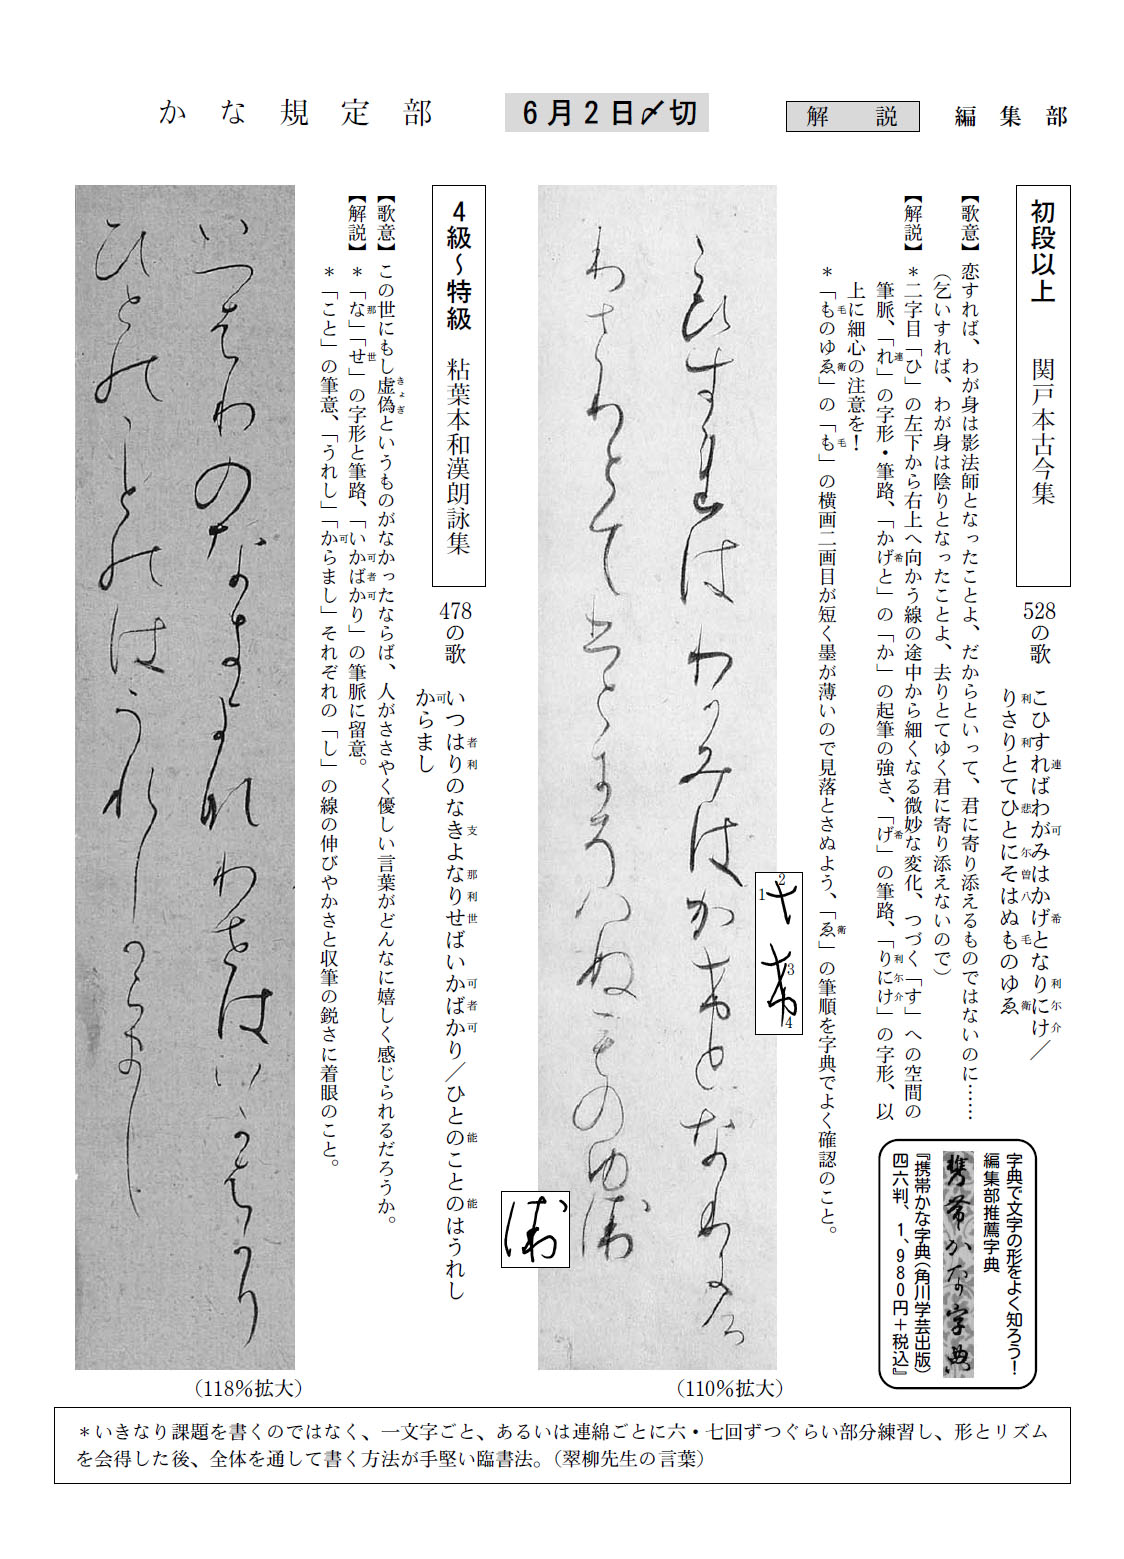 かな規定部　6月2日〆切　解説　編集部
初段以上　関戸本古今集
528の歌
こひすればわがみはかげとなりにけ／
連可希利尓介
りさりとてひとにそはぬものゆゑ
利利悲尓曽八毛衛
【歌意】恋すれば、わが身は影法師となったことよ、だからといって、君に寄り添えるものではないのに……
（乞いすれば、わが身は陰りとなったことよ、去りとてゆく君に寄り添えないので）
【解説】＊二字目「ひ」の左下から右上へ向かう線の途中から細くなる微妙な変化、つづく「す」への空間の
筆脈、「れ」の字形・筆路、「かげと」の「か」の起筆の強さ、「げ」の筆路、「りにけ」の字形、以
連希希利尓介
上に細心の注意を！
＊「ものゆゑ」の「も」の横画二画目が短く墨が薄いので見落とさぬよう、「ゑ」の筆順を字典でよく確認のこと。
毛衛毛衛
1
2
3
4
（110％拡大）
字典で文字の形をよく知ろう！
編集部推薦字典
携帯かな字典
『携帯かな字典（角川学芸出版）
四六判、1、980円＋税込』
4級～特級　粘葉本和漢朗詠集
478の歌
いつはりのなきよなりせばいかばかり／ひとのことのはうれし
者利支那利世可者可能能
からまし
可
【歌意】この世にもし虚偽というものがなかったならば、人がささやく優しい言葉がどんなに嬉しく感じられるだろうか。
きょぎ
【解説】＊「な」「せ」の字形と筆路、「いかばかり」の筆脈に留意。
那世可者可
＊「こと」の筆意、「うれし」「からまし」それぞれの「し」の線の伸びやかさと収筆の鋭さに着眼のこと。
可
（118％拡大）
＊いきなり課題を書くのではなく、一文字ごと、あるいは連綿ごとに六・七回ずつぐらい部分練習し、形とリズム
を会得した後、全体を通して書く方法が手堅い臨書法。（翠柳先生の言葉）